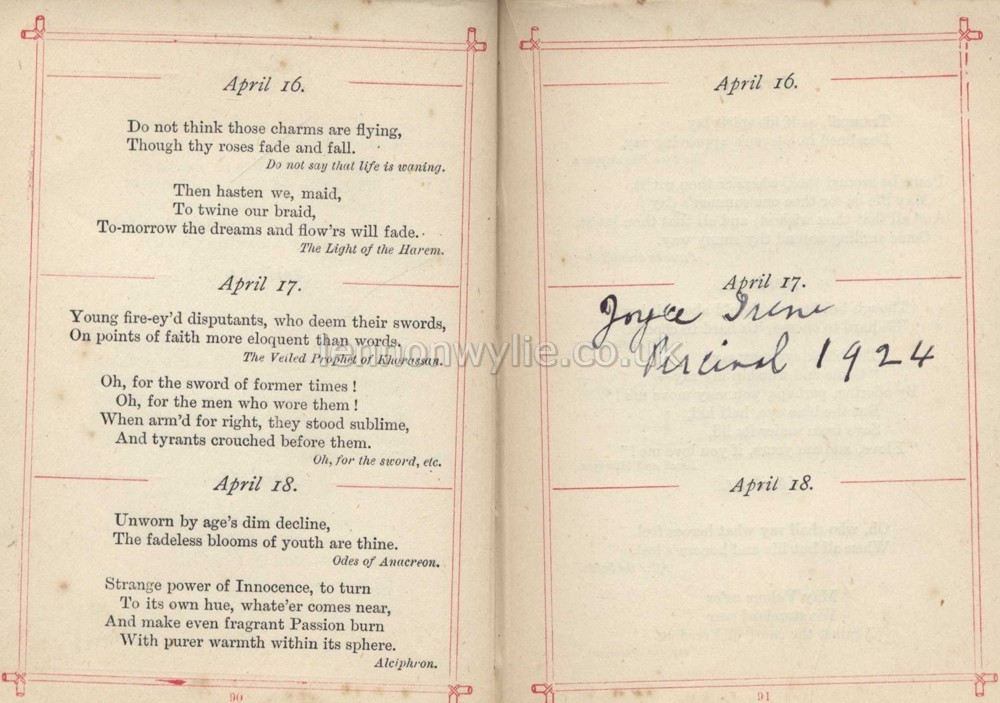 April 16.
Do not think those charms are flying,
Though thy roses fade and fall.
Do not say that life is waning.
Then hasten we, maid,
To twine our braid,
To-morrow the dreams and flow'rs will fade.
The Light of the Harem.
April 17.
Young fire-ey'd disputants, who deem their swords,
On points of faith more eloquent than words.
The Veiled Prophet of Khorassan.
Oh, for the sword of former times !
Oh, for the men who wore them !
When arm'd for right, they stood sublime,
And tyrants crouched before them.
Oh, for the sword, etc.
April 18.
Unworn by age's dim decline,
The fadeless blooms of youth are thine.
Odes of Anacreon.
Strange power of Innocence, to turn
To its own hue, whate'er comes near,
And make even fragrant Passion burn
With purer warmth within its sphere.
Alciphron.
90
April 16.
April 17.
Joyce Irene
Percival 1924
April 18.
91
lennonwylie.co.uk